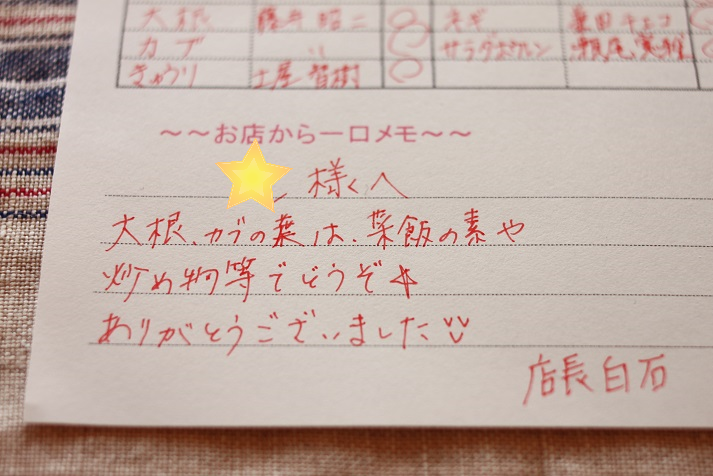 大根 藤井昭二 ○ ネギ
カブ 〃 ○ サラダホウレン
きゅうり 土屋智樹 ○
～～お店から一口メモ～～
様くへ
大根、カブの葉は、菜飯の素や
炒め物等でどうぞ☆
ありがとうございました
店長白石